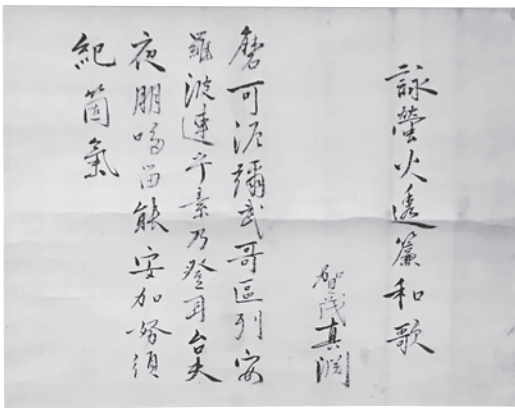 詠螢火透簾和歌
賀茂真淵
磨可泥彌武哥區列安
羅波連乎素乃登耳台夫
夜朋哆留能安加努須
紀箇氣